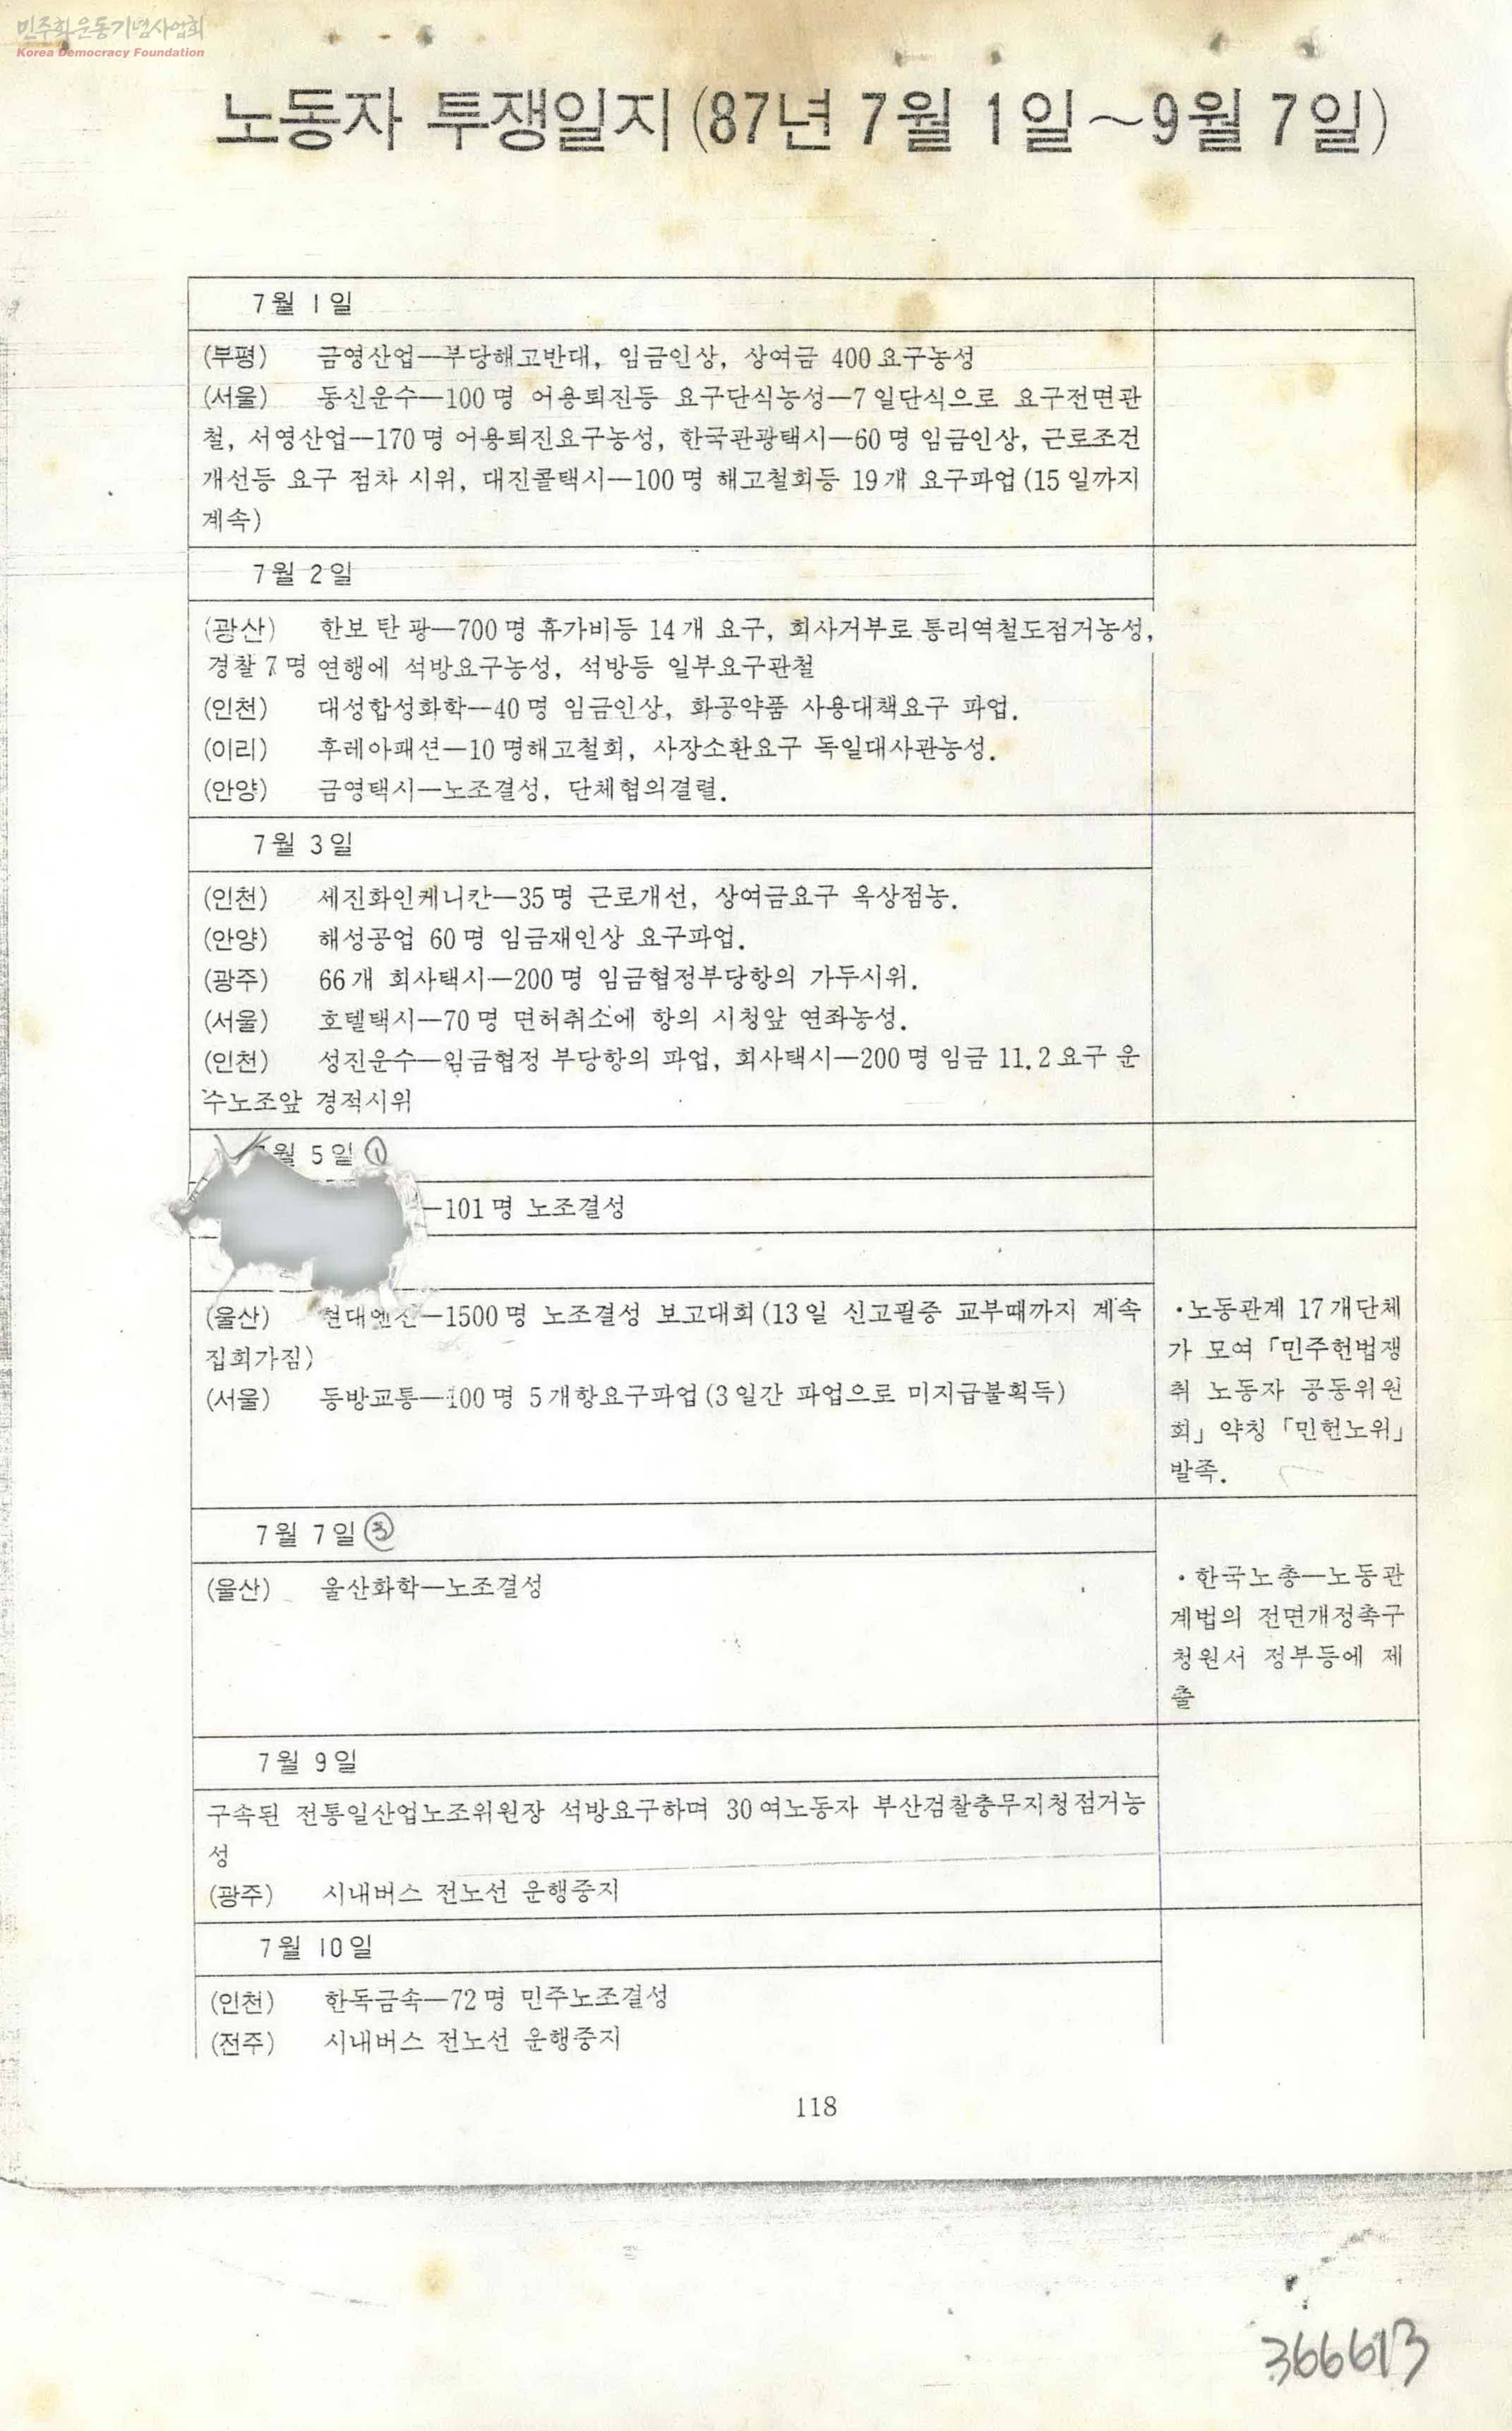 민주화운동기념사업회
Korea Democracy Foundation
노동자 투쟁일지(87년 7월 1일~9월 7일)
7월 1일
(부평) 금영산업―부당해고반대, 임금인상, 상여금 400요구농성
(서울) 동신운수―100명 어용퇴진등 요구단식농성―7일단식으로 요구전면관
철, 서영산업―170명 어용퇴진요구농성, 한국관광택시―60명 임금인상, 근로조건
개선등 요구 점차 시위, 대진콜택시―100명 해고철회등 19개 요구파업(15일까지
계속)
7월 2일
(광산) 한보탄광―700명 휴가비등 14개 요구, 회사거부로 통리역철도점거농성,
경찰 7명 연행에 석방요구농성, 석방등 일부요구관철
(인천) 대성합성화학―40명 임금인상, 화공약품 사용대책요구 파업.
(이리) 후레아패션―10명해고철회, 사장소환요구 독일대사관농성.
(안양) 금영택시―노조결성, 단체협의결렬.
7월 3일
(인천) 세진화인케니칸―35명 근로개선, 상여금요구 옥상점농.
(안양) 해성공업 60명 임금재인상 요구파업.
(광주) 66개 회사택시―200명 임금협정부당항의 가두시위.
(서울) 호텔택시―70명 면허취소에 항의 시청앞 연좌농성.
(인천) 성진운수―임금협정 부당항의 파업, 회사택시―200명 임금 11.2요구 운
수노조앞 경적시위
월 5일 ①
―101명 노조결성
(울산) 현대엔진―1500명 노조결성 보고대회(13일 신고필증 교부때까지 계속
집회가짐)
(서울) 동방교통―100명 5개항요구파업(3일간 파업으로 미지급불획득)
·노동관계 17개단체
가 모여 「민주헌법쟁
취 노동자 공동위원
회」 약칭 「민헌노위」
발족.
7월 7일 ③
(울산) 울산화학―노조결성
·한국노총―노동관
계법의 전면개정촉구
청원서 정부등에 제
출
7월 9일
구속된 전통일산업노조위원장 석방요구하며 30여노동자 부산검찰충무지청점거농
성
(광주) 시내버스 전노선 운행중지
7월 10일
(인천) 한독금속―72명 민주노조결성
(전주) 시내버스 전노선 운행중지
118
366613